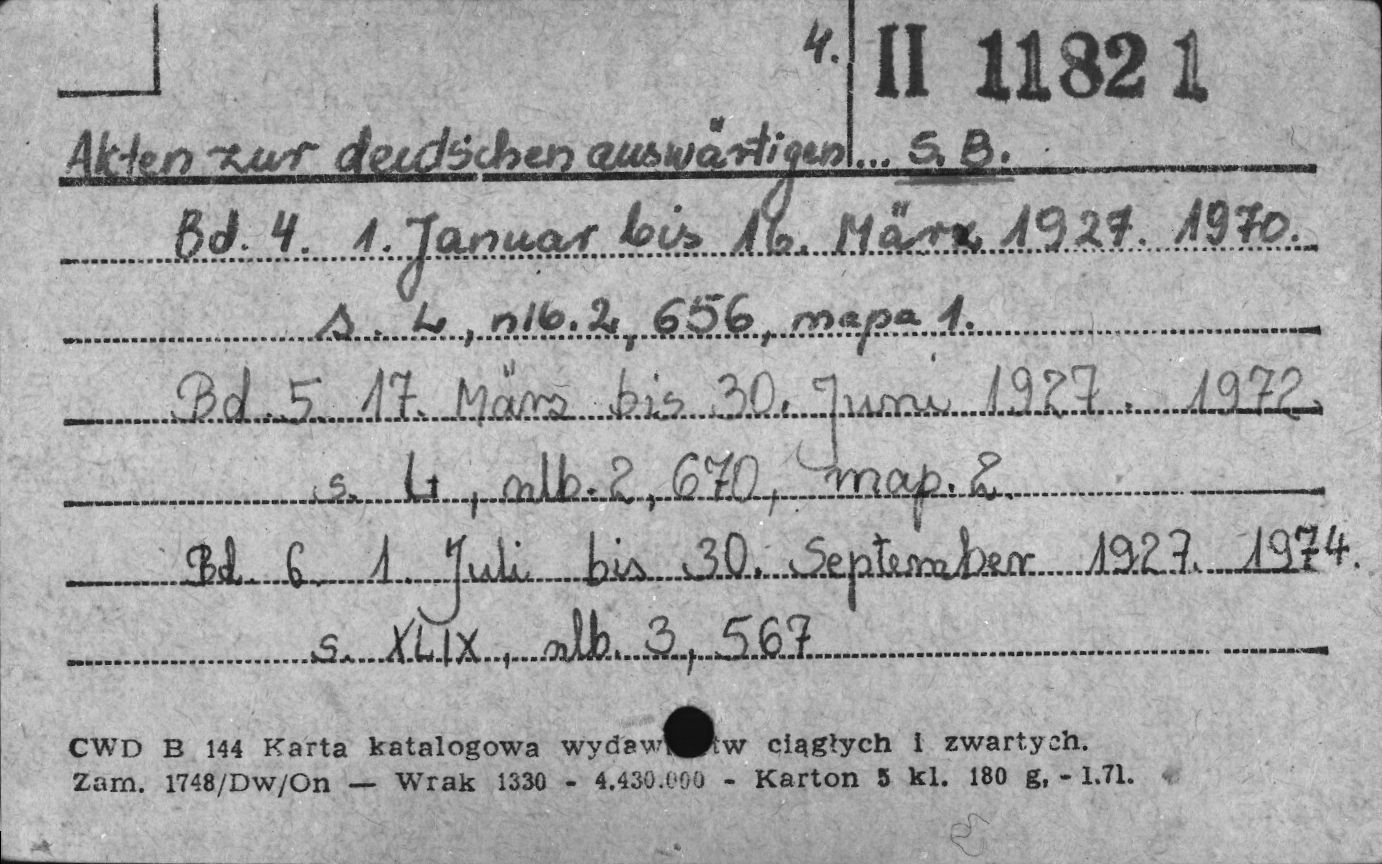 4. II 11821
Akten zur deutschen auswärtigen ... S. B.
Bd. 4. 1. Januar bis 16. März 1927. 1970.
s. L, nlb. 2, 656, mapa 1.
Bd. 5. 17. März bis 30. Juni 1927. 1972.
s. L, nlb. 2, 670, map. 2.
Bd. 6. 1. Juli bis 30. September 1927. 1974.
s. XLIX, nlb. 3, 567
CWD B 144 Karta katalogowa ciągłych i zwartych.
Zam. 1748/Dw/On — Wrak 1330 - 4.430.000 - Karton 5 kl. 180 g, - I.71.